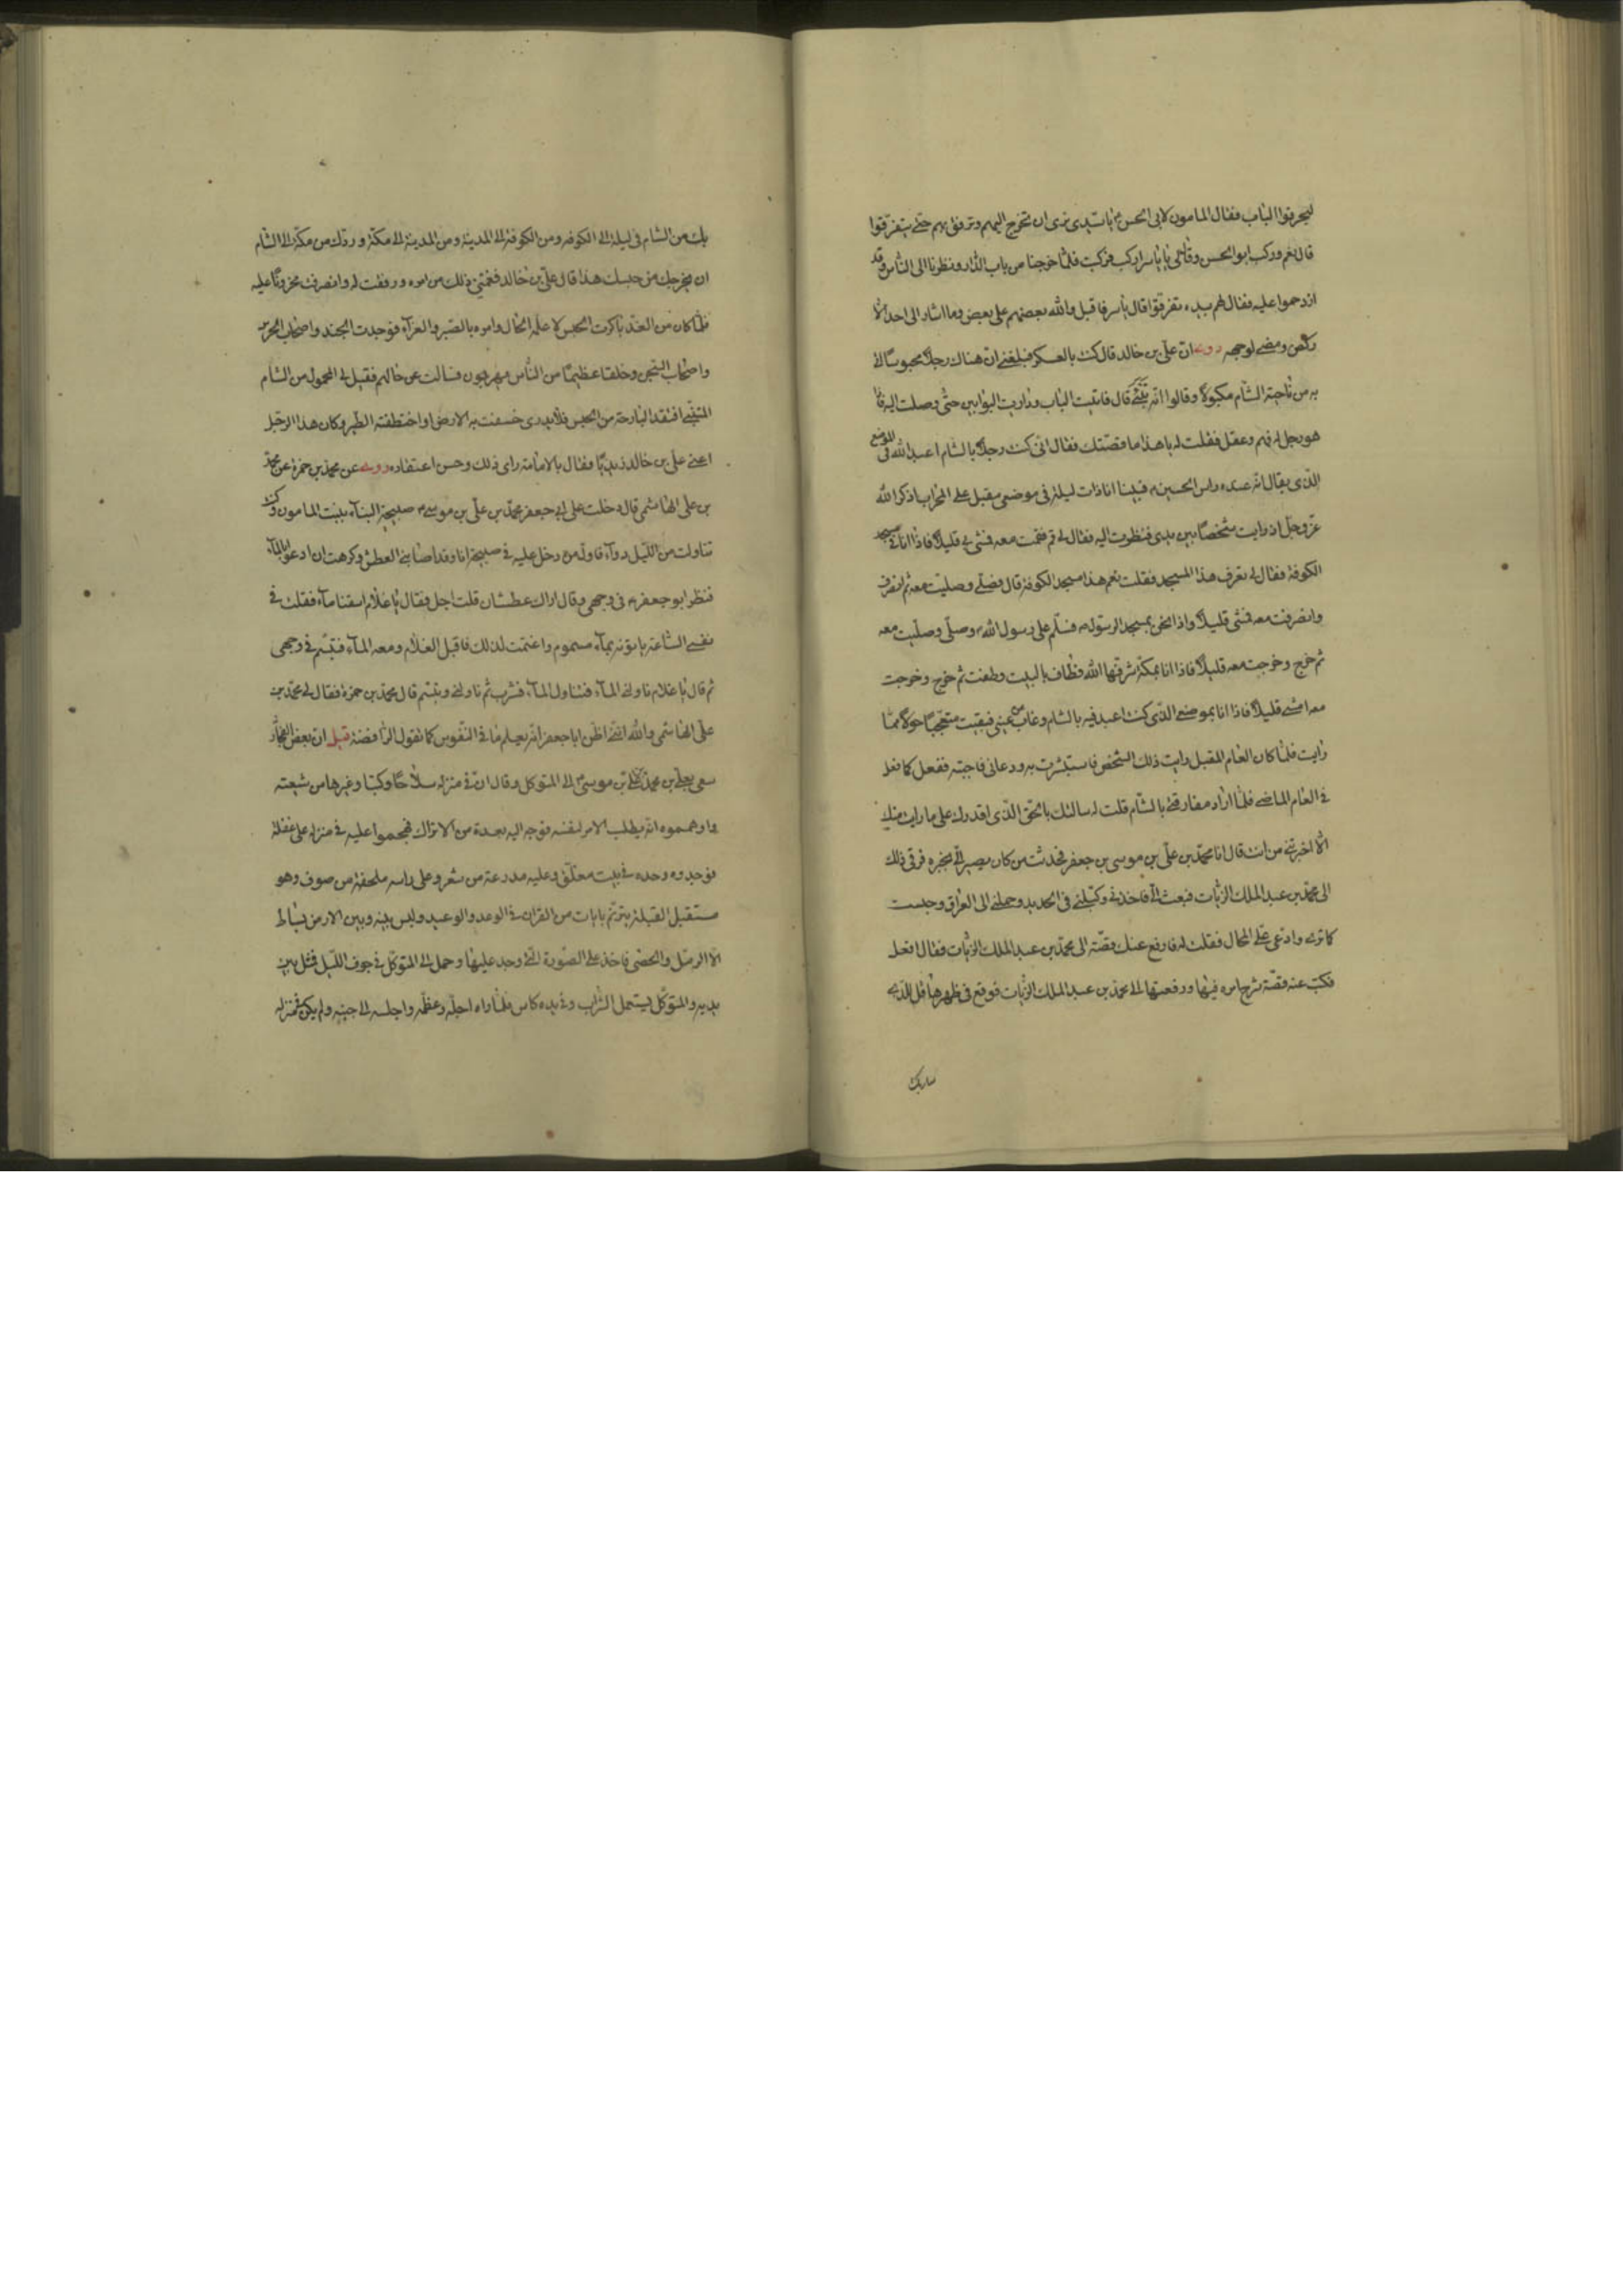 ليحرقوا الباب فقال المامون لابي الحسن ع يا سيدي ترى ان تخرج اليهم وترفق بهم حتى يتفرقوا
قال نعم وركب ابو الحسن وقال لي يا ياسر اركب فركبت فلما خرجنا من باب الدار ونظرنا الى الناس وقد
ازدحموا عليه فقال لهم بيده تفرقوا قال ياسر فاقبل والله بعضهم على بعض وما اشار الى احد الا
ركض ومضى لوجهه روى ان علي بن خالد قال كنت بالعسكر فبلغني ان هناك رجلا محبوسا اتى
به من ناحية الشام مكبولا وقالوا انه تنبئ قال فاتيت الباب وداريت البوابين حتى وصلت اليه فاذا
هو رجل له فهم وعقل فقلت له يا هذا ما قصتك فقال اني كنت رجلا بالشام اعبد الله في الموضع
الذي يقال انه عنده راس الحسين ع فبينا انا ذات ليلة في موضعي مقبل على المحراب اذكر الله
عز وجل اذ رايت شخصا بين يدي فنظرت اليه فقال لي قم فقمت معه فمشى بي قليلا فاذا انا في مسجد
الكوفة فقال لي تعرف هذا المسجد فقلت نعم هذا مسجد الكوفة قال فصلى وصليت معه ثم انصرف
وانصرفت معه فمشى قليلا واذا نحن بمسجد الرسول ص فسلم على رسول الله ص وصلى وصليت معه
ثم خرج وخرجت معه قليلا فاذا انا بمكة شرفها الله فطاف بالبيت وطفت ثم خرج وخرجت
معه امشى قليلا فاذا انا بموضعي الذي كنت اعبد فيه بالشام وغاب من عيني فبقيت متعجبا حولا مما
رايت فلما كان العام المقبل رايت ذلك الشخص فاستبشرت به ودعاني فاجبته ففعل كما فعل
في العام الماضي فلما اراد مفارقتي بالشام قلت له سالتك بالحق الذي اقدرك على ما رايت منك
الا اخبرتني من انت قال انا محمد بن علي بن موسى بن جعفر فحدثت من كان يصير الي بخبره فرقى ذلك
الى محمد بن عبد الملك الزيات فبعث الي فاخذني وكبلني في الحديد وحملني الى العراق وحبست
كما ترى وادعى علي المحال فقلت له فارفع عنك قصة الى محمد بن عبد الملك الزيات فقال افعل
فكتبت عنه قصة شرح امره فيها ورفعتها الى محمد بن عبد الملك الزيات فوقع في ظهرها قل للذي
سار بك
بك من الشام في ليلة الى الكوفة ومن الكوفة الى المدينة ومن المدينة الى مكة وردك من مكة الى الشام
ان يخرجك من حبسك هذا قال علي بن خالد فغمني ذلك من امره ورققت له وانصرفت محزونا عليه
فلما كان من الغد باكرت الحبس لاعلمه الحال وامره بالصبر والعزآء فوجدت الجند واصحاب الحرس
واصحاب السجن وخلقا عظيما من الناس يهرجون فسالت عن حالهم فقيل لي المحمول من الشام
المتنبي افتقد البارحة من الحبس فلا يدرى خسفت به الارض او اختطفته الطير وكان هذا الرجل
اعني علي بن خالد زيديا فقال بالامامة راى ذلك وحسن اعتقاده روى عن محمد بن حمزة عن محمد
بن علي الهاشمي قال دخلت على ابي جعفر محمد بن علي بن موسى ع صبيحة البنآء ببنت المامون وكنت
تناولت من الليل دوآء فاول من دخل عليه في صبيحته انا وقد اصابني العطش وكرهت ان ادعو بالمآء
فنظر ابو جعفر ع في وجهي وقال اراك عطشان قلت اجل فقال يا غلام اسقنا مآء فقلت في
نفسي الساعة ياتونه بمآء مسموم واغتممت لذلك فاقبل الغلام ومعه المآء فتبسم في وجهي
ثم قال يا غلام ناولني المآء فتناول المآء فشرب ثم ناولني وتبسم قال محمد بن حمزة فقال لي محمد بن
علي الهاشمي والله انني اظن ابا جعفر انه يعلم ما في النفوس كما تقول الرافضة قيل ان بعض الفجار
سعى بعلي بن محمد بن علي بن موسى ع الى المتوكل وقال ان في منزله سلاحا وكتبا وغيرها من شيعته
واوهموه انه يطلب الامر لنفسه فوجه اليه بعدة من الاتراك فهجموا عليه في منزله على غفلة
فوجدوه وحده في بيت مغلق وعليه مدرعة من شعر وعلى راسه ملحفة من صوف وهو
مستقبل القبلة يترنم بايات من القران في الوعد والوعيد وليس بينه وبين الارض بساط
الا الرمل والحصى فاخذ على الصورة التي وجد عليها وحمل الى المتوكل في جوف الليل فمثل بين
يديه والمتوكل يستعمل الشراب وفي يده كاس فلما راه اجله وعظمه واجلسه الى جنبه ولم يكن في منزله